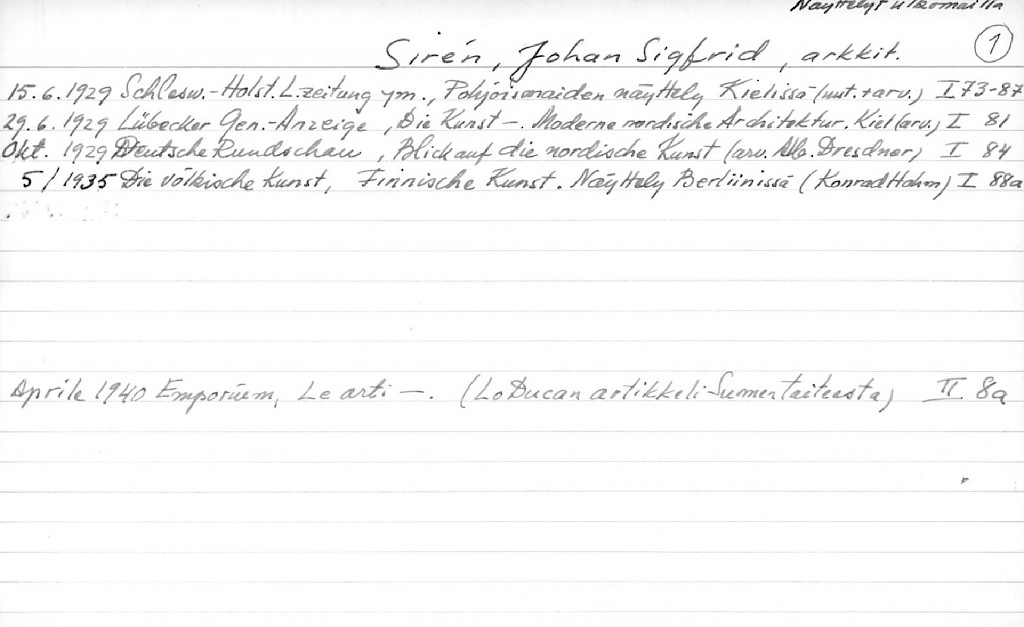 Näyttelyt ulkomailla
1
Sirén, Johan Sigfrid, arkkit.
15.6.1929 Schlesw.-Holst. L.zeitung ym., Pohjoismaiden näyttely Kielissä (uut. + arv.) I 73-87
29.6.1929 Lübecker Gen.-Anzeige, Die Kunst –. Moderne nordische Architektur. Kiel (arv.) I 81
Okt. 1929 Deutsche Rundschau, Blick auf die nordische Kunst (arv. Alb. Dresdner) I 84
5/1935 Die völkische Kunst, Finnische Kunst. Näyttely Berliinissä (Konrad Hahm) I 88a
Aprile 1940 Emporium, Le arti –. (Lo Ducan artikkeli Suomen taiteesta) II 8a